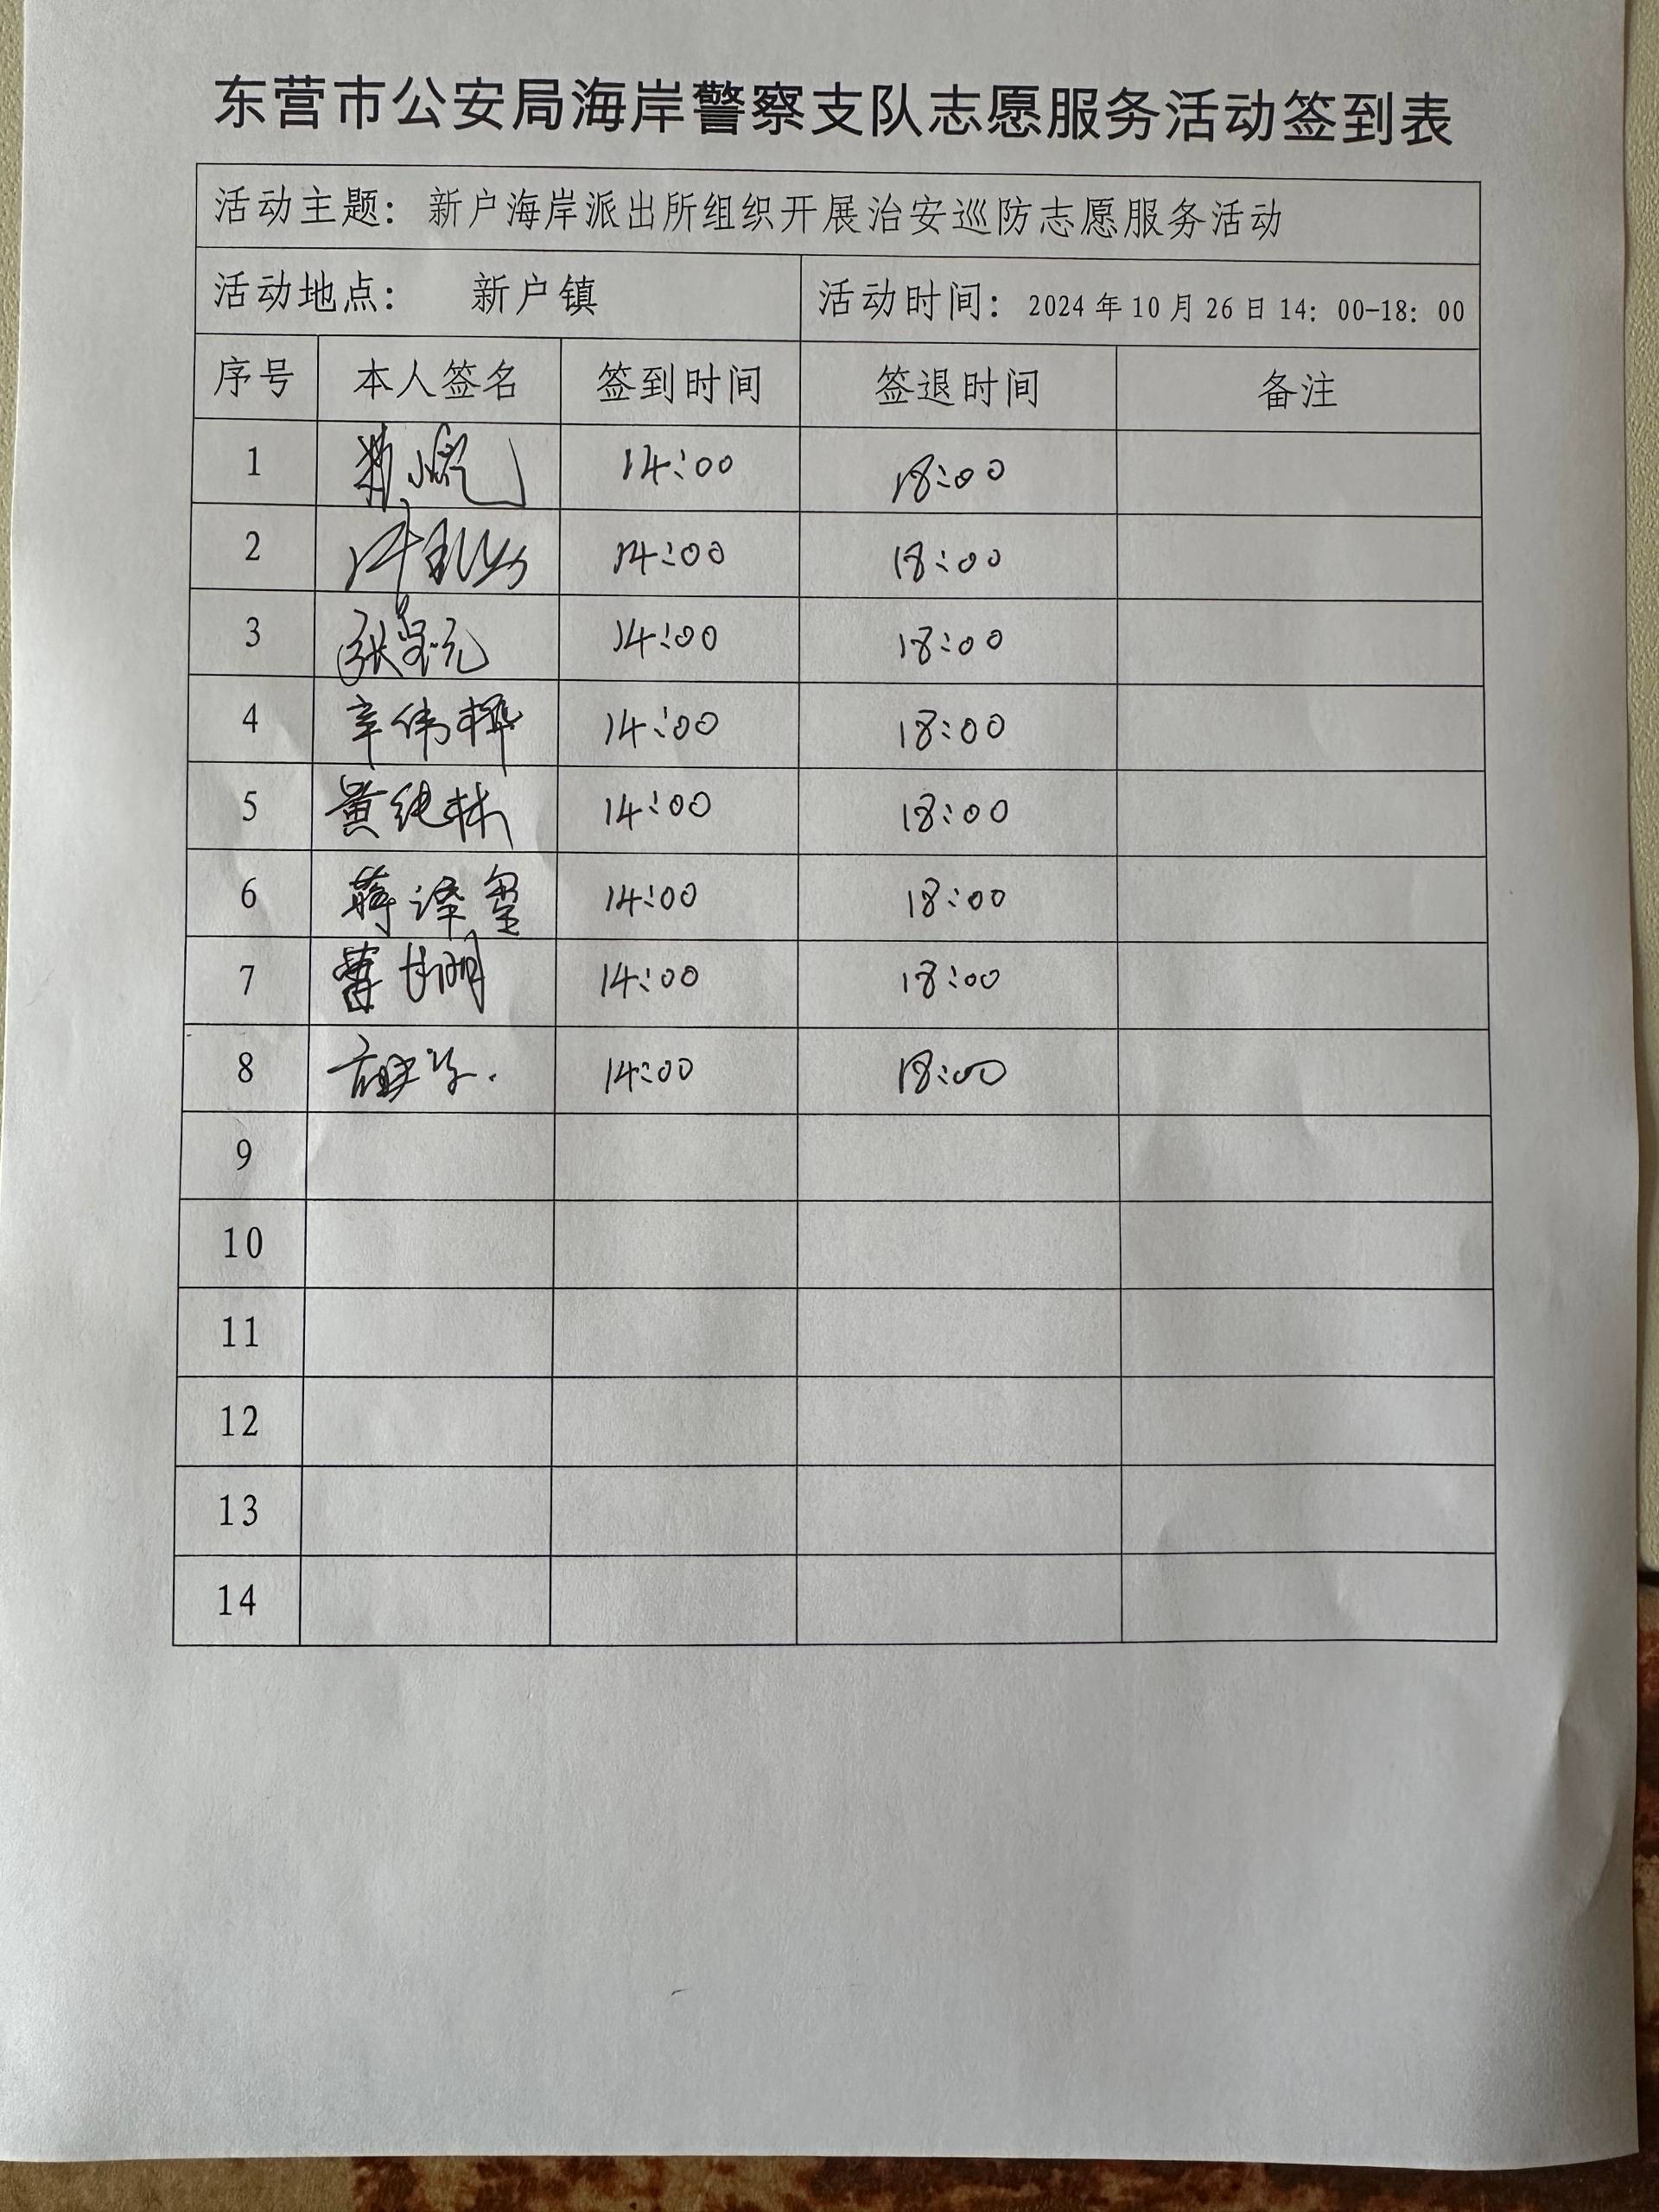 东营市公安局海岸警察支队志愿服务活动签到表
活动主题：新户海岸派出所组织开展治安巡防志愿服务活动
活动地点： 新户镇 活动时间：2024年10月26日14：00-18：00
序号 本人签名 签到时间 签退时间 备注
1 14:00 18:00
2 14:00 18:00
3 张宝元 14:00 18:00
4 辛伟桦 14:00 18:00
5 黄纯林 14:00 18:00
6 蒋泽玺 14:00 18:00
7 14:00 18:00
8 14:00 18:00
9
10
11
12
13
14